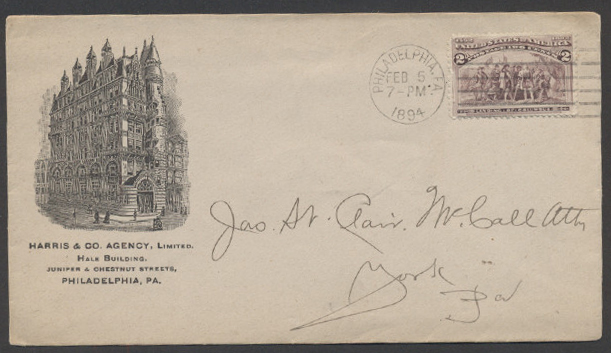 PHILADELPHIA, PA.
FEB 5
7-PM
1894
UNITED STATES OF AMERICA
2 2
LANDING OF COLUMBUS
HARRIS & CO. AGENCY, LIMITED.
HALE BUILDING.
JUNIPER & CHESTNUT STREETS,
PHILADELPHIA, PA.
Jas. St. Clair. McCall Atty
York
Pa